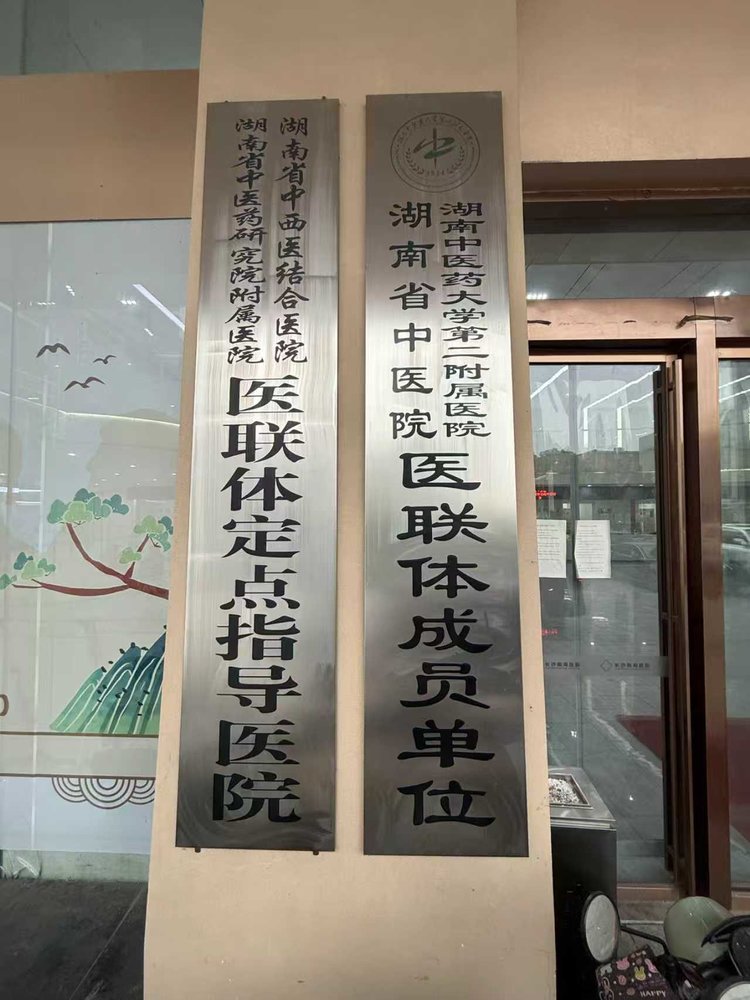 湖南省中西医结合医院
湖南省中医药研究院附属医院
医联体定点指导医院
湖南中医药大学第二附属医院
湖南省中医院
医联体成员单位
1934
HAPPY